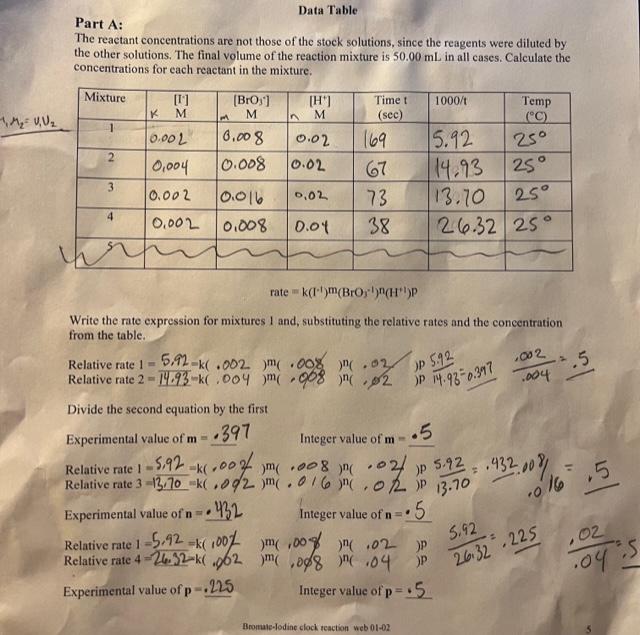 Data Table
Part A:
The reactant concentrations are not those of the stock solutions, since the reagents were diluted by
the other solutions. The final volume of the reaction mixture is 50.00 mL in all cases. Calculate the
concentrations for each reactant in the mixture.
Mixture [I-] [BrO3-] [H+] Time t 1000/t Temp
K M m M n M (sec) (°C)
M1M2=V1V2
1 0.002 0.008 0.02 169 5.92 25°
2 0.004 0.008 0.02 67 14.93 25°
3 0.002 0.016 0.02 73 13.70 25°
4 0.002 0.008 0.04 38 26.32 25°
5
rate = k(I-1)m(BrO3-1)n(H+1)p
Write the rate expression for mixtures 1 and, substituting the relative rates and the concentration
from the table.
Relative rate 1 = 5.92 =k( .002 )m( .008 )n( .02 )p 5.92 .002
Relative rate 2 = 14.93 =k( .004 )m( .008 )n( .02 )p 14.93 = 0.397 .004 = .5
Divide the second equation by the first
Experimental value of m = .397 Integer value of m = .5
Relative rate 1 = 5.92 =k( .002 )m( .008 )n( .02 )p 5.92 = .432 .008 = .5
Relative rate 3 = 13.70 =k( .002 )m( .016 )n( .02 )p 13.70 .016
Experimental value of n = .432 Integer value of n = .5
Relative rate 1 = 5.92 =k( .002 )m( .008 )n( .02 )p 5.92 = .225 .02 = .5
Relative rate 4 = 26.32 =k( .002 )m( .008 )n( .04 )p 26.32 .04
Experimental value of p = .225 Integer value of p = .5
Bromate-Iodine clock reaction web 01-02 5